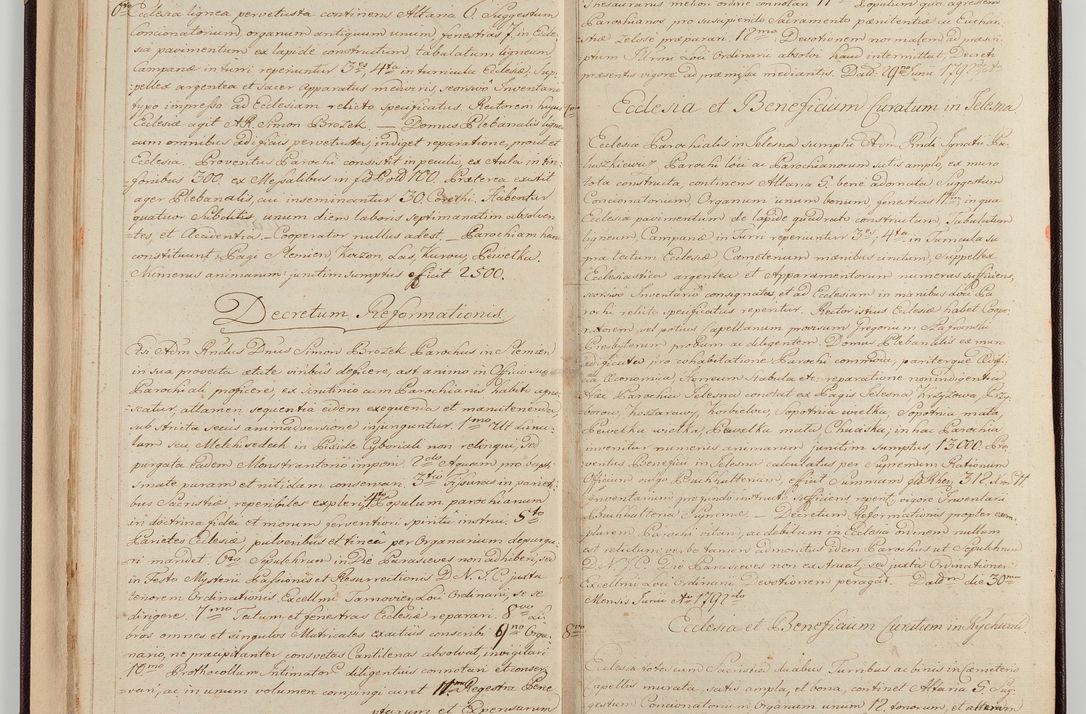 6to Ecclesia lignea pervetusta continens Altaria 6. Suggestum
Concionatorium, organum antiquum unum, fenestras 7. in Eccle-
sia pavimentum ex lapide constructum, tabulatum ligneum,
Campanæ in turri reperiuntur 3es, 4ta in turricula Ecclesiæ, Sup-
pellex argentea et Sacer Apparatus mediocris, seorsivo Inventario
typo impresso ad Ecclesiam relicto specificatus. Rectorem hujus
Ecclesiæ agit AR. Simon Brożek. — Domus Plebanalis lignea
cum omnibus ædificiis pervetustis, indiget reparatione, prout et
Ecclesia. Proventus Parochi consistit in peculio, ex Aula in
300. ex Messalibus in fl. Pold 100. Præterea existit
ager Plebanalis, cui inseminantur 30. Corethi. Habentur
quatuor Subditi, unum diem laboris septimanatim absolven-
tes, et Accidentia. Cooperator nullus adest. — Parochiam hanc
constituunt Pagi Slemien, Kocon, Las, Kurow, Pewelka.
Numerus animarum junctim sumptus efficit 2500.
Decretum Reformationis
Etsi Adm Rndus Dnus Simon Brożek Parochus in Slemien
in sua provecta ætate viribus deficere, ast animo in Officio suo
Parochiali proficere, ex scrutinio cum Parochianis habito agno-
scatur, attamen sequentia eidem exequenda et manutenenda,
sub stricta secus animadversione injunguntur. 1mo Ut Lunu-
lam seu Melchisedech in Pixide Cyboriali non relinqui, sed
purgata eadem Monstrantorii imponi. 2do Aquam pro bapti-
smate puram et nitidam conservari. 3tio Fissuras in pariet-
bus Sacristiæ reperibiles expleri, 4to Populum parochianum
in doctrina fidei et morum ferventiori spiritu instrui. 5to
Parietes Ecclesiæ, pulveribus et tinea per Organarium depurga-
ri mandet. 6to Sepulchrum in Die Parasceves non adhiberi, sed
in Festo Mysterii Passionis et Resurrectionis D. N. J. C. juxta
tenorem Ordinationis Excellmi Tarnovien. Loci Ordinarii, se se
dirigere. 7mo Tectum et fenestras Ecclesiæ reparari. 8vo Li-
bros omnes et singulos Metricales exactius conscribi 9no Orga-
nario, ne præcipitanter consvetas Cantilenas absolvat, invigilari
10mo Prothocollum Intimator. diligentius connotari et conser-
vari, ac in unum volumen compingi curet 11mo Regestra Perce-
ptarum et Expensarum
Thesaurarius meliori ordine connotari 11 Populum que agrestem
Parochianos pro suscipiendo Sacramento pænitentiæ ac Euchari-
stiæ zelose præparari. 12mo Devotionem normalem ad præscri-
ptum Illrmi Loci Ordinarii absolvi haud intermittat, Decreti
præsentis vigore ad præmissa mediantis. Datt. 29na Junii 1792do
7mo Ecclesia et Beneficium Curatum in Jelesna
Ecclesia Parochialis in Jelesna sumptu Adm Rndi Ignatii
Parochi loci ac Parochianorum satis ampla, ex muro
tota constructa, continens Altaria 5. bene adornata, Suggestum
Concionatorium, Organum unum bonum, fenestras 11. in qua
Ecclesia pavimentum de lapide quadrato constructum, Tabulatum
ligneum, Campanæ in Turri reperiuntur 3es; 4ta in Turricula su-
pra tectum Ecclesiæ Cæmeterium mænibus unitum, Suppellex
Ecclesiastica argentea et Apparamentorum numerus sufficiens,
seorsivo Inventario consignatus, et ad Ecclesiam in manibus Loci Pa-
rochi relicto specificatus reperitur. Rector istius Ecclesiæ habet Coope-
ratorem, vel potius Capellanum provisum Gregorium Szafranski
Presbyterum probum ac diligentem. Domus Plebanalis ex muro
ædificata pro cohabitatione Parochi commoda, pariterque Ædifi-
cia Œconomica, Horreum Stabula etc. reparatione non indigentia
Hæc Parochia Jelesna constat ex Pagis Jelesna, Krzyżowa, Przy-
borow, Koszarawy, Korbielow, Sopotnia wielka, Sopotnia mała,
Pewelka wielka, Pewelka mała Cwaska; in hac Parochia
invenitur numerus animarum junctim sumptus 13000. Pro-
ventus Beneficii in Jelesna calculatus per Supremum Rationum
Officium vulgo Buchhalterium, efficit Summam fl. Rhen. 312.
Inventarium pro fundi instructo sufficiens reperit, vigore Inventarii
Buchhalteria Supremæ. — Decretum Reformationis propter exem-
plarem Parochi vitam, ac debitum in Ecclesia ordinem nullum
est relictum, verbo tamen admonitus idem Parochus ut Sepulchrum
D. N. J. C. Die Parasceves non exstruat, sed juxta Ordinationem
Excellmi Loci Ordinarii Devotionem peragat. Dattm die 30ma
Mensis Junii Ao 1792do
8vo Ecclesia et Beneficium Curatum in Rychwald
Ecclesia rotes cum Sacristia duabus Turribus ac binis in Cæmeterio
Capellis murata, satis ampla, et bona, continet Altaria 5. Sug-
gestum Concionatorium, Organum unum 12. tonorum, et alterum